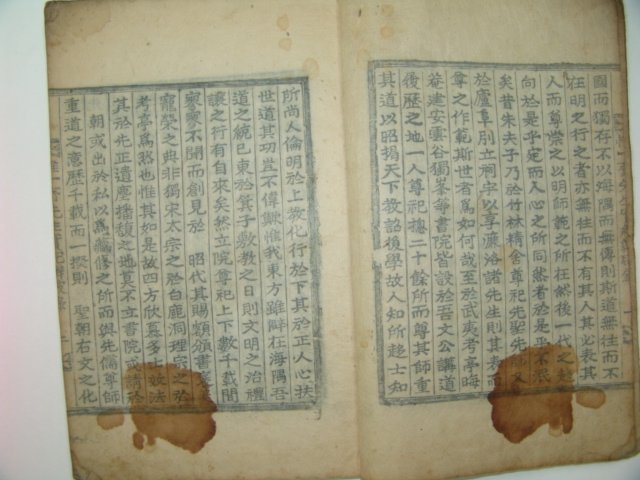 國而獨存不以海隅而無傳則斯道無往而不
在明之行之者亦無往而不有其人其必表其
人而尊榮之以明師範之所在然後一代之趍
向於是乎定而人心之所同然者於是乎不泯
矣昔朱夫子乃於竹林精舍尊祀先聖先師又
於廬阜別立祠宇以享濂洛諸先生則其表而
尊之作範斯世者爲如何哉至於武夷考亭晦
菴建安雲谷獨峯等書院皆設於吾文公講道
後歷之地一人尊祀摠二十餘所而尊其師重
其道以昭揭天下敎詔後學故人知所趍士知
所尚人倫明於上敎化行於下其於正人心扶
世道其功豈不偉歟惟我東方雖辟在海隅吾
道之統已東於箕子敷敎之日則文明之治禮
讓之行有自來矣然立院尊祀上下數千載間
寥寥不聞而創見於 昭代其賜額頒書
寵榮之典非獨宋太宗之於白鹿洞理宗之於
考亭爲然也惟其如是故四方欣慕多士效法
其於先正遺塵播馥之地莫不立書院或請於
朝或出於私以爲藏修之所而與先儒尊師
重道之意歷千載而一揆則 聖朝右文之化